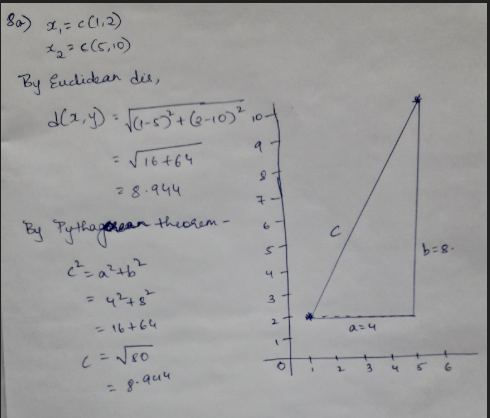 8a) x₁ = c(1,2)
x₂ = c(5,10)
By Euclidean dis,
d(x,y) = √(1-5)² + (2-10)²
= √16+64
= 8.944
By Pythagorean theorem -
c² = a² + b²
= 4² + 8²
= 16 + 64
c = √80
= 8.944
10
9
8
7
6
5
4
3
2
1
0 1 2 3 4 5 6
c
b = 8.
a = 4